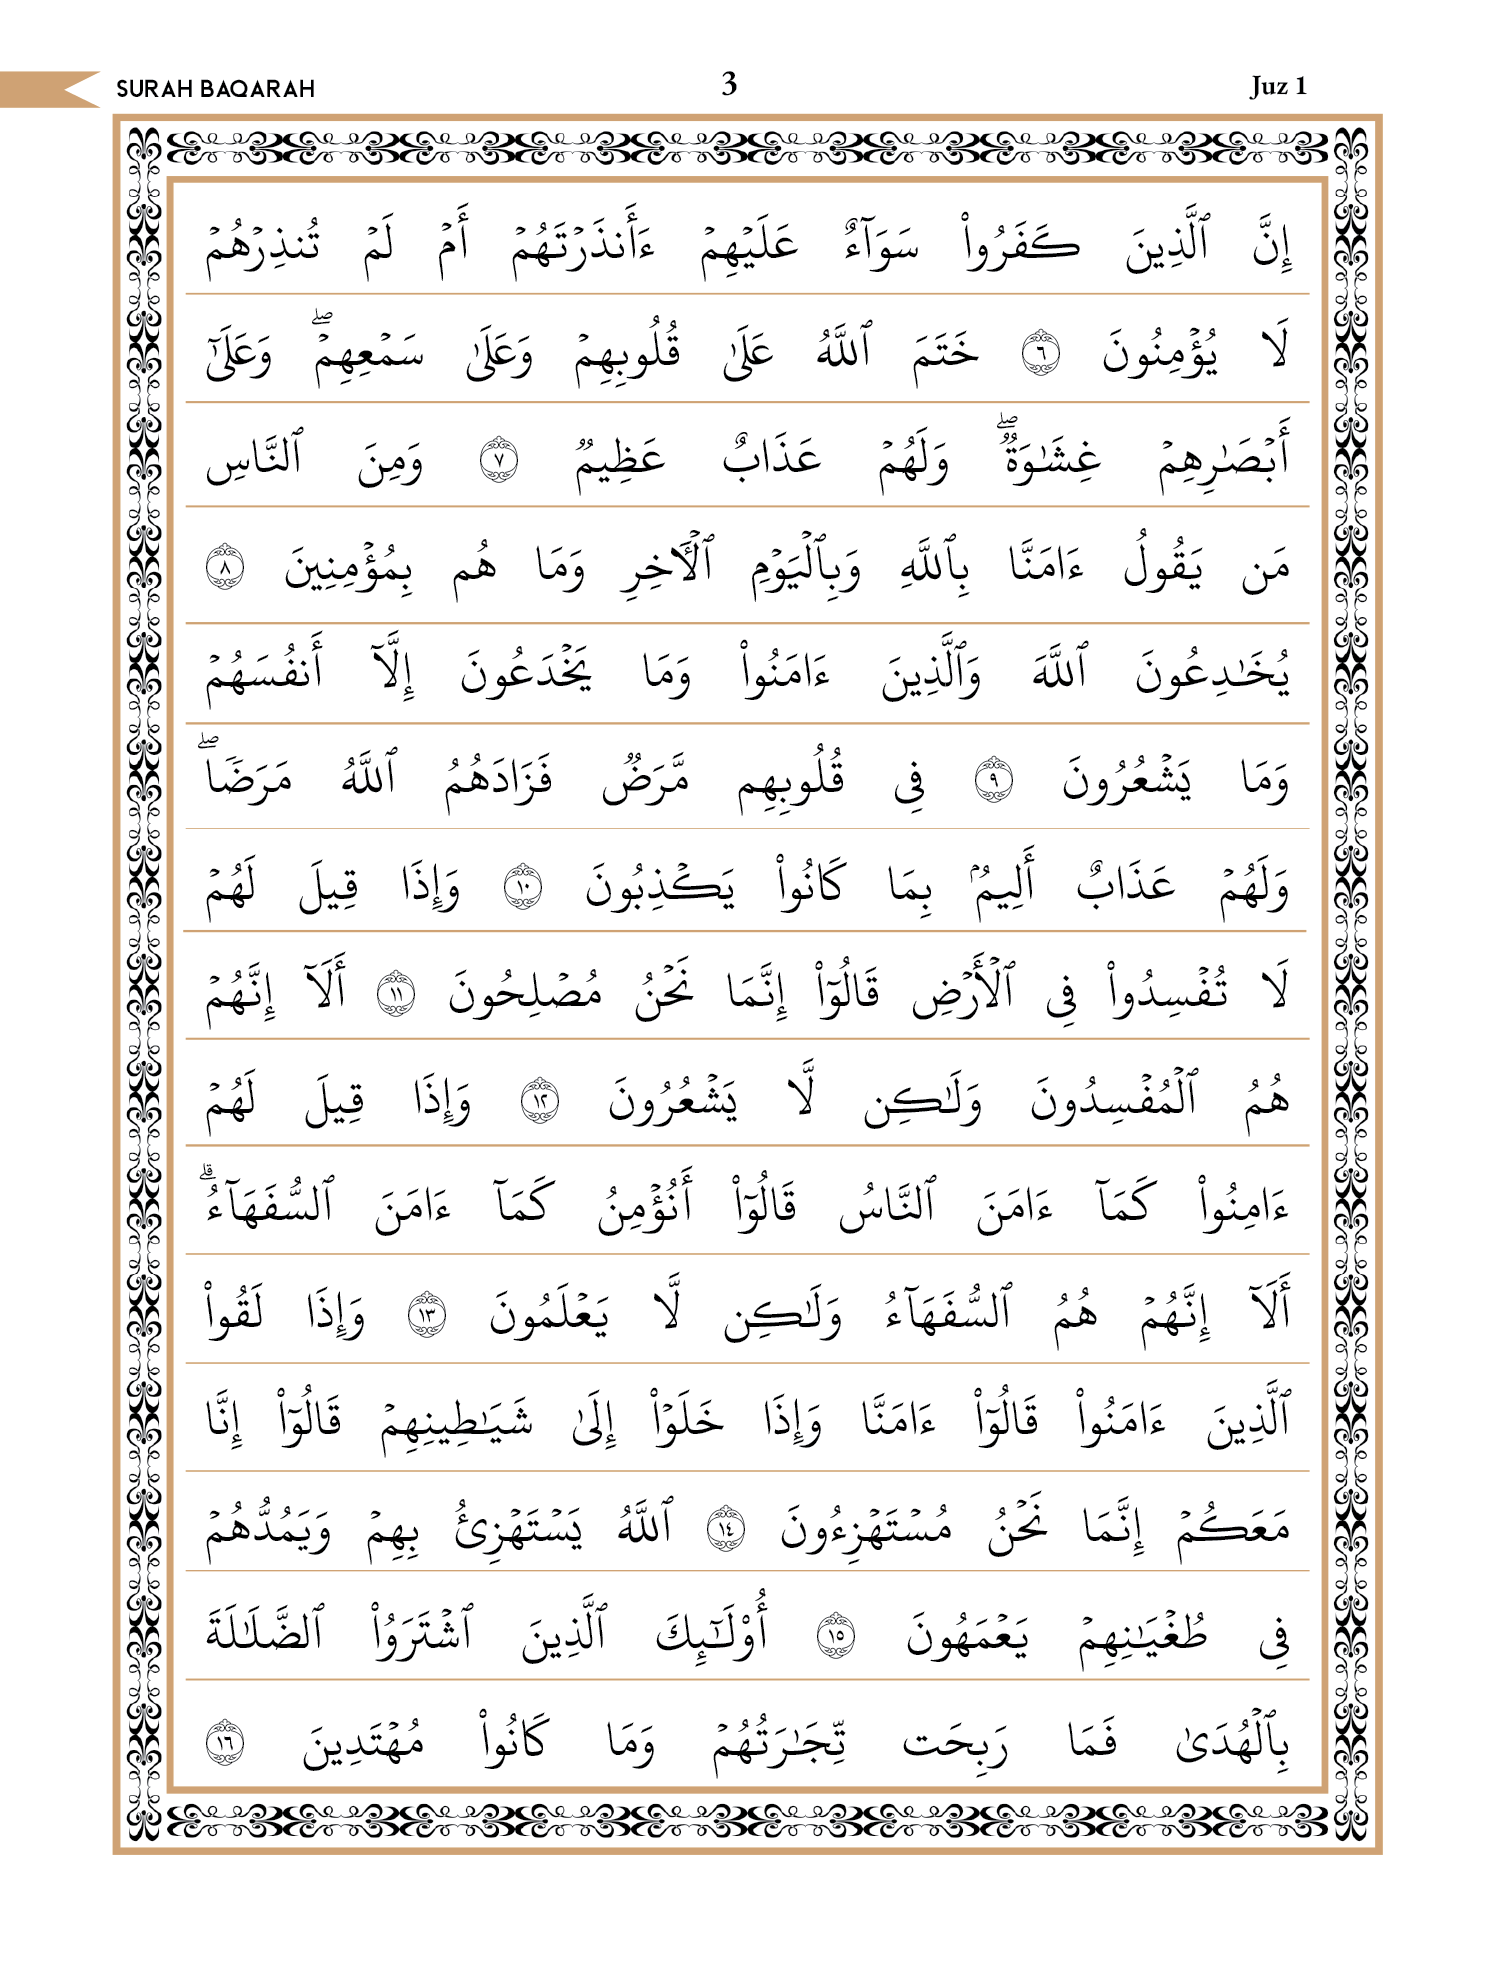 SURAH BAQARAH 3 Juz 1
إِنَّ ٱلَّذِينَ كَفَرُوا۟ سَوَآءٌ عَلَيْهِمْ ءَأَنذَرْتَهُمْ أَمْ لَمْ تُنذِرْهُمْ
لَا يُؤْمِنُونَ ٦ خَتَمَ ٱللَّهُ عَلَىٰ قُلُوبِهِمْ وَعَلَىٰ سَمْعِهِمْ ۖ وَعَلَىٰٓ
أَبْصَـٰرِهِمْ غِشَـٰوَةٌ ۖ وَلَهُمْ عَذَابٌ عَظِيمٌ ٧ وَمِنَ ٱلنَّاسِ
مَن يَقُولُ ءَامَنَّا بِٱللَّهِ وَبِٱلْيَوْمِ ٱلْـَٔاخِرِ وَمَا هُم بِمُؤْمِنِينَ ٨
يُخَـٰدِعُونَ ٱللَّهَ وَٱلَّذِينَ ءَامَنُوا۟ وَمَا يَخْدَعُونَ إِلَّآ أَنفُسَهُمْ
وَمَا يَشْعُرُونَ ٩ فِى قُلُوبِهِم مَّرَضٌ فَزَادَهُمُ ٱللَّهُ مَرَضًا ۖ
وَلَهُمْ عَذَابٌ أَلِيمٌۢ بِمَا كَانُوا۟ يَكْذِبُونَ ١٠ وَإِذَا قِيلَ لَهُمْ
لَا تُفْسِدُوا۟ فِى ٱلْأَرْضِ قَالُوٓا۟ إِنَّمَا نَحْنُ مُصْلِحُونَ ١١ أَلَآ إِنَّهُمْ
هُمُ ٱلْمُفْسِدُونَ وَلَـٰكِن لَّا يَشْعُرُونَ ١٢ وَإِذَا قِيلَ لَهُمْ
ءَامِنُوا۟ كَمَآ ءَامَنَ ٱلنَّاسُ قَالُوٓا۟ أَنُؤْمِنُ كَمَآ ءَامَنَ ٱلسُّفَهَآءُ ۗ
أَلَآ إِنَّهُمْ هُمُ ٱلسُّفَهَآءُ وَلَـٰكِن لَّا يَعْلَمُونَ ١٣ وَإِذَا لَقُوا۟
ٱلَّذِينَ ءَامَنُوا۟ قَالُوٓا۟ ءَامَنَّا وَإِذَا خَلَوْا۟ إِلَىٰ شَيَـٰطِينِهِمْ قَالُوٓا۟ إِنَّا
مَعَكُمْ إِنَّمَا نَحْنُ مُسْتَهْزِءُونَ ١٤ ٱللَّهُ يَسْتَهْزِئُ بِهِمْ وَيَمُدُّهُمْ
فِى طُغْيَـٰنِهِمْ يَعْمَهُونَ ١٥ أُو۟لَـٰٓئِكَ ٱلَّذِينَ ٱشْتَرَوُا۟ ٱلضَّلَـٰلَةَ
بِٱلْهُدَىٰ فَمَا رَبِحَت تِّجَـٰرَتُهُمْ وَمَا كَانُوا۟ مُهْتَدِينَ ١٦